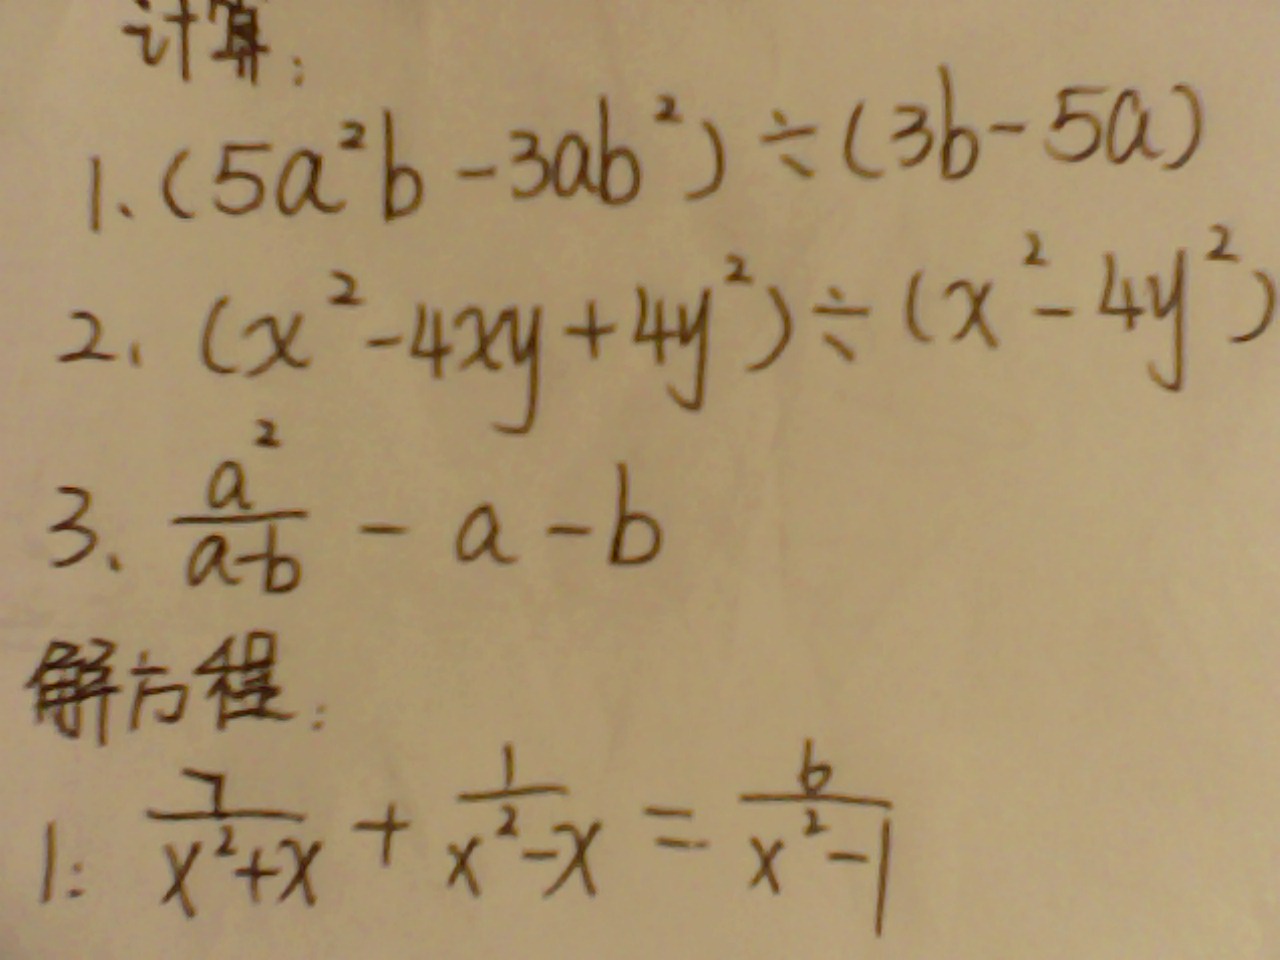 计算:
1. (5a²b - 3ab²) ÷ (3b - 5a)
2. (x² - 4xy + 4y²) ÷ (x² - 4y²)
3. a²/(a-b) - a - b
解方程:
1: 7/(x²+x) + 1/(x²-x) = 6/(x²-1)